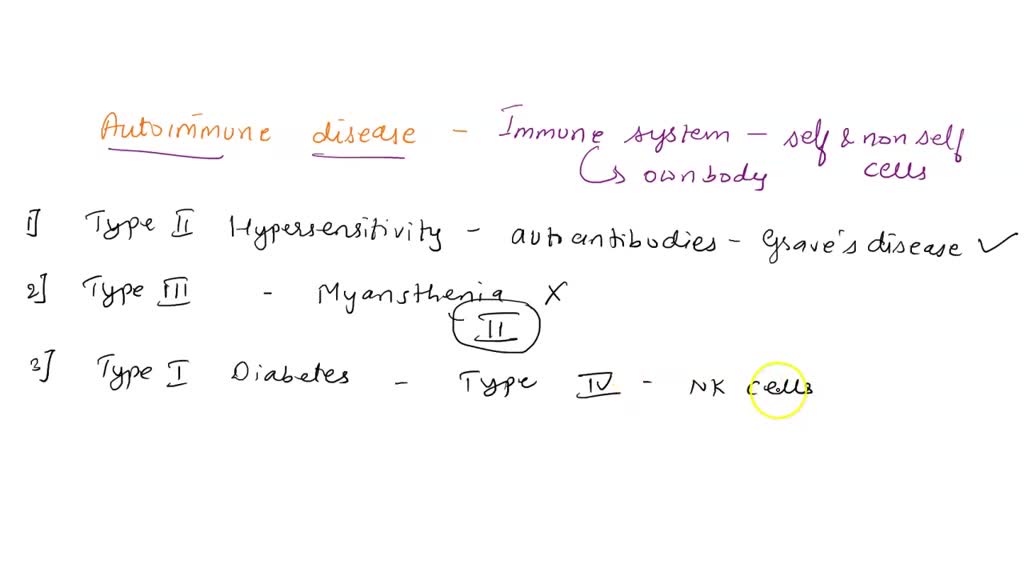 Autoimmune disease - Immune system - self & non self
↳ own body cells
1] Type II Hypersensitivity - autoantibodies - Grave's disease ✓
2] Type III - Myansthenia X
II
3] Type I Diabetes - Type IV - NK cells